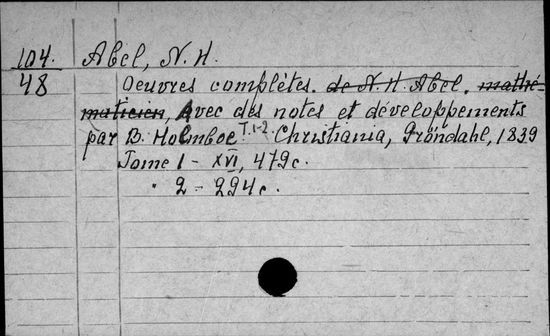 104. Abel, N. H.
48 Oeuvres complètes. de N. H. Abel, mathé-
maticien, Avec des notes et développements
par B. Holmboe T. 1-2. Christiania, Gröndahl, 1839
Tome 1 - XVI, 479c.
" 2 - 294c.